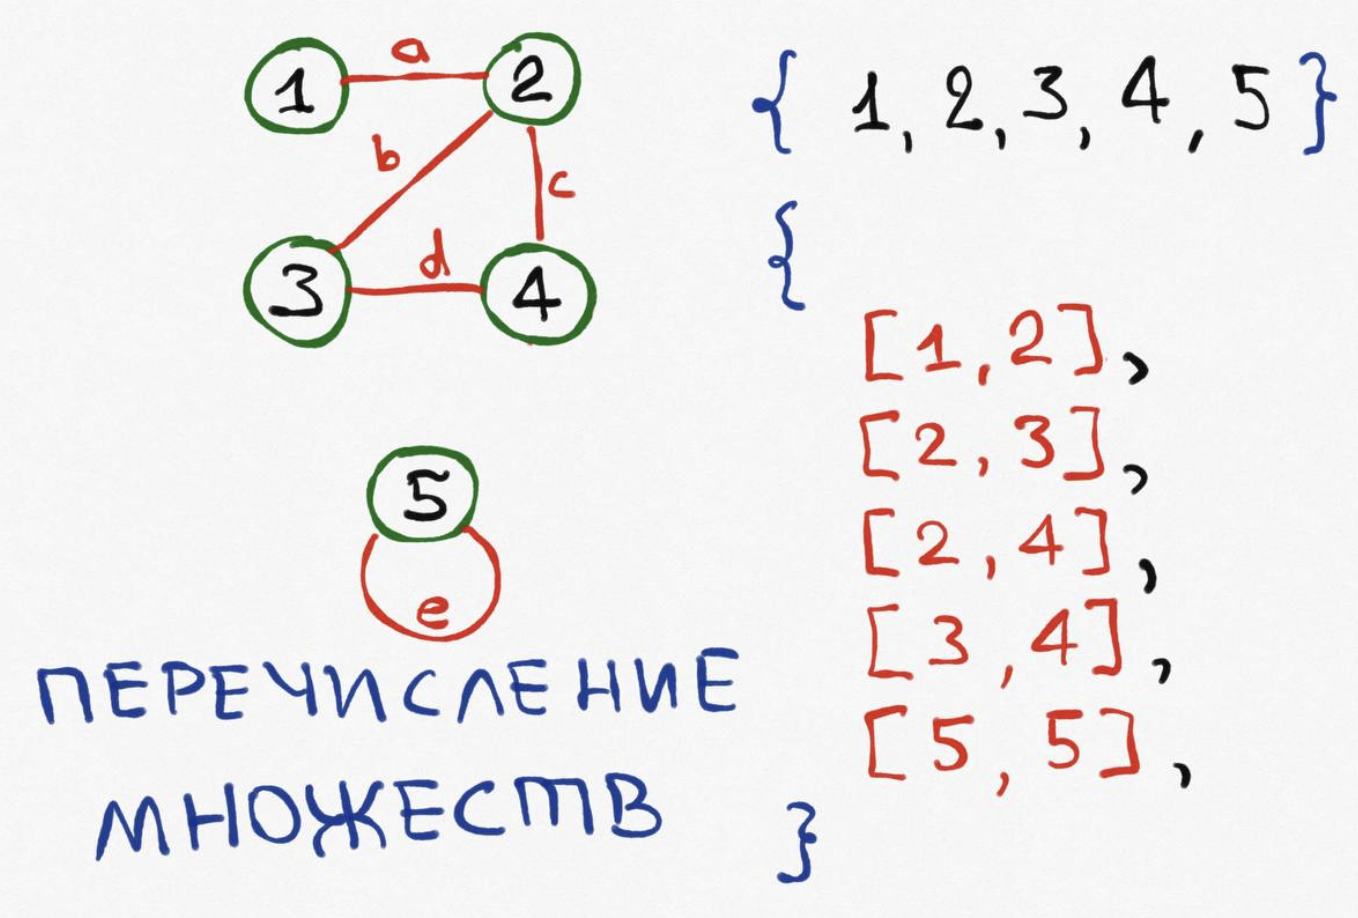 1 a 2
b
c
3 d 4
5
e
ПЕРЕЧИСЛЕНИЕ
МНОЖЕСТВ
{ 1, 2, 3, 4, 5 }
{
[1, 2],
[2, 3],
[2, 4],
[3, 4],
[5, 5],
}